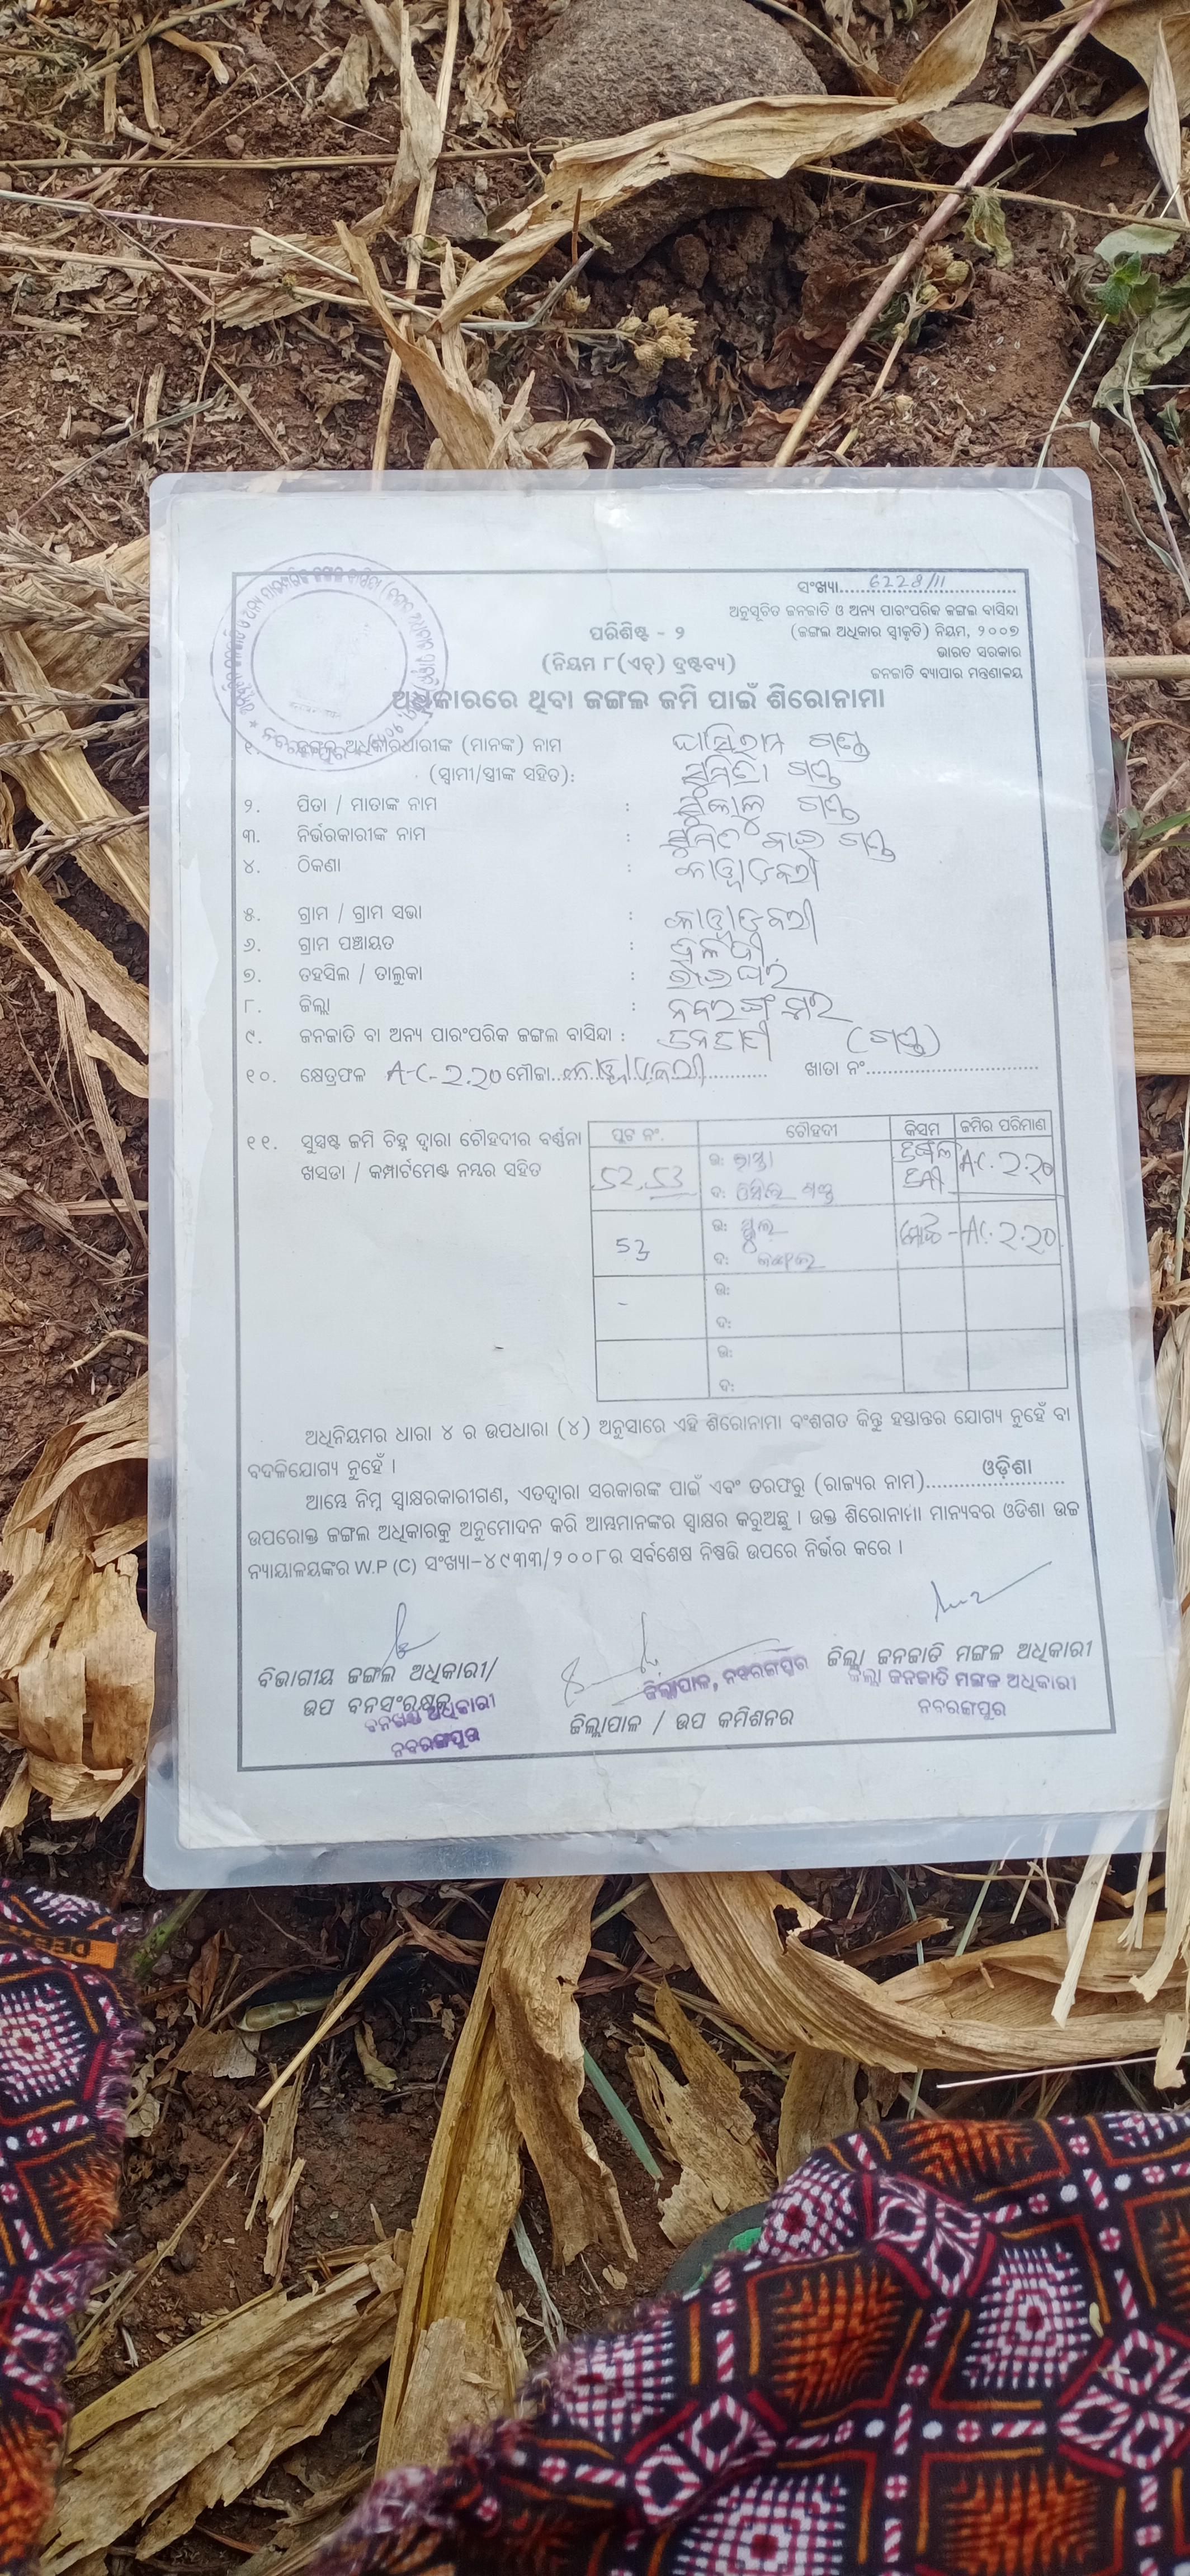 ସଂଖ୍ୟା....6228/11....
ଅନୁସୂଚିତ ଜନଜାତି ଓ ଅନ୍ୟ ପାରଂପରିକ ଜଙ୍ଗଲ ବାସିନ୍ଦା
ପରିଶିଷ୍ଟ - ୨
(ଜଙ୍ଗଲ ଅଧିକାର ସ୍ୱୀକୃତି) ନିୟମ, ୨୦୦୭
ଭାରତ ସରକାର
(ନିୟମ ୮(ଏଚ୍) ଦ୍ରଷ୍ଟବ୍ୟ)
ଜନଜାତି ବ୍ୟାପାର ମନ୍ତ୍ରଣାଳୟ
ଅଧିକାରରେ ଥିବା ଜଙ୍ଗଲ ଜମି ପାଇଁ ଶିରୋନାମା
୧. ଜଙ୍ଗଲ ଅଧିକାରଧାରୀଙ୍କ (ମାନଙ୍କ) ନାମ ଘାସିରାମ ଗଣ୍ଡ
(ସ୍ୱାମୀ/ସ୍ତ୍ରୀଙ୍କ ସହିତ): ସୁମିତ୍ରା ଗଣ୍ଡ
୨. ପିତା / ମାତାଙ୍କ ନାମ : ଗଣ୍ଡ
୩. ନିର୍ଭରକାରୀଙ୍କ ନାମ : ଗଣ୍ଡ
୪. ଠିକଣା :
୫. ଗ୍ରାମ / ଗ୍ରାମ ସଭା :
୬. ଗ୍ରାମ ପଞ୍ଚାୟତ :
୭. ତହସିଲ / ତାଲୁକା : ରାଇଘର
୮. ଜିଲ୍ଲା : ନବରଙ୍ଗପୁର
୯. ଜନଜାତି ବା ଅନ୍ୟ ପାରଂପରିକ ଜଙ୍ଗଲ ବାସିନ୍ଦା : ଜନଜାତି (ଗଣ୍ଡ)
୧୦. କ୍ଷେତ୍ରଫଳ A-C-2.20 ମୌଜା........ ଖାତା ନଂ........
୧୧. ସୁସ୍ପଷ୍ଟ ଜମି ଚିହ୍ନ ଦ୍ୱାରା ଚୌହଦୀର ବର୍ଣ୍ଣନା
ଖସଡା / କମ୍ପାର୍ଟମେଣ୍ଟ ନମ୍ବର ସହିତ
ପ୍ଲଟ ନଂ. ଚୌହଦୀ କିସମ ଜମିର ପରିମାଣ
52,53 ଉ: ରାସ୍ତା ଜଙ୍ଗଲ AC. 2.20
ଦ: ଗଣ୍ଡ
53 ଉ: ମୋଟ - AC. 2.20
ଦ: ଜଙ୍ଗଲ
- ଉ:
ଦ:
ଉ:
ଦ:
ଅଧିନିୟମର ଧାରା ୪ ର ଉପଧାରା (୪) ଅନୁସାରେ ଏହି ଶିରୋନାମା ବଂଶଗତ କିନ୍ତୁ ହସ୍ତାନ୍ତର ଯୋଗ୍ୟ ନୁହେଁ ବା
ବଦଳିଯୋଗ୍ୟ ନୁହେଁ ।
ଆମ୍ଭେ ନିମ୍ନ ସ୍ୱାକ୍ଷରକାରୀଗଣ, ଏତଦ୍ୱାରା ସରକାରଙ୍କ ପାଇଁ ଏବଂ ତରଫରୁ (ରାଜ୍ୟର ନାମ)....ଓଡ଼ିଶା....
ଉପରୋକ୍ତ ଜଙ୍ଗଲ ଅଧିକାରକୁ ଅନୁମୋଦନ କରି ଆମ୍ଭମାନଙ୍କର ସ୍ୱାକ୍ଷର କରୁଅଛୁ । ଉକ୍ତ ଶିରୋନାମା ମାନ୍ୟବର ଓଡିଶା ଉଚ୍ଚ
ନ୍ୟାୟାଳୟଙ୍କର W.P (C) ସଂଖ୍ୟା-୪୯୩୩/୨୦୦୮ର ସର୍ବଶେଷ ନିଷ୍ପତ୍ତି ଉପରେ ନିର୍ଭର କରେ ।
ବିଭାଗୀୟ ଜଙ୍ଗଲ ଅଧିକାରୀ/
ଉପ ବନସଂରକ୍ଷକ
ବନଖଣ୍ଡ ଅଧିକାରୀ
ନବରଙ୍ଗପୁର
ଜିଲ୍ଲାପାଳ, ନବରଙ୍ଗପୁର
ଜିଲ୍ଲାପାଳ / ଉପ କମିଶନର
ଜିଲ୍ଲା ଜନଜାତି ମଙ୍ଗଳ ଅଧିକାରୀ
ଜିଲ୍ଲା ଜନଜାତି ମଙ୍ଗଳ ଅଧିକାରୀ
ନବରଙ୍ଗପୁର